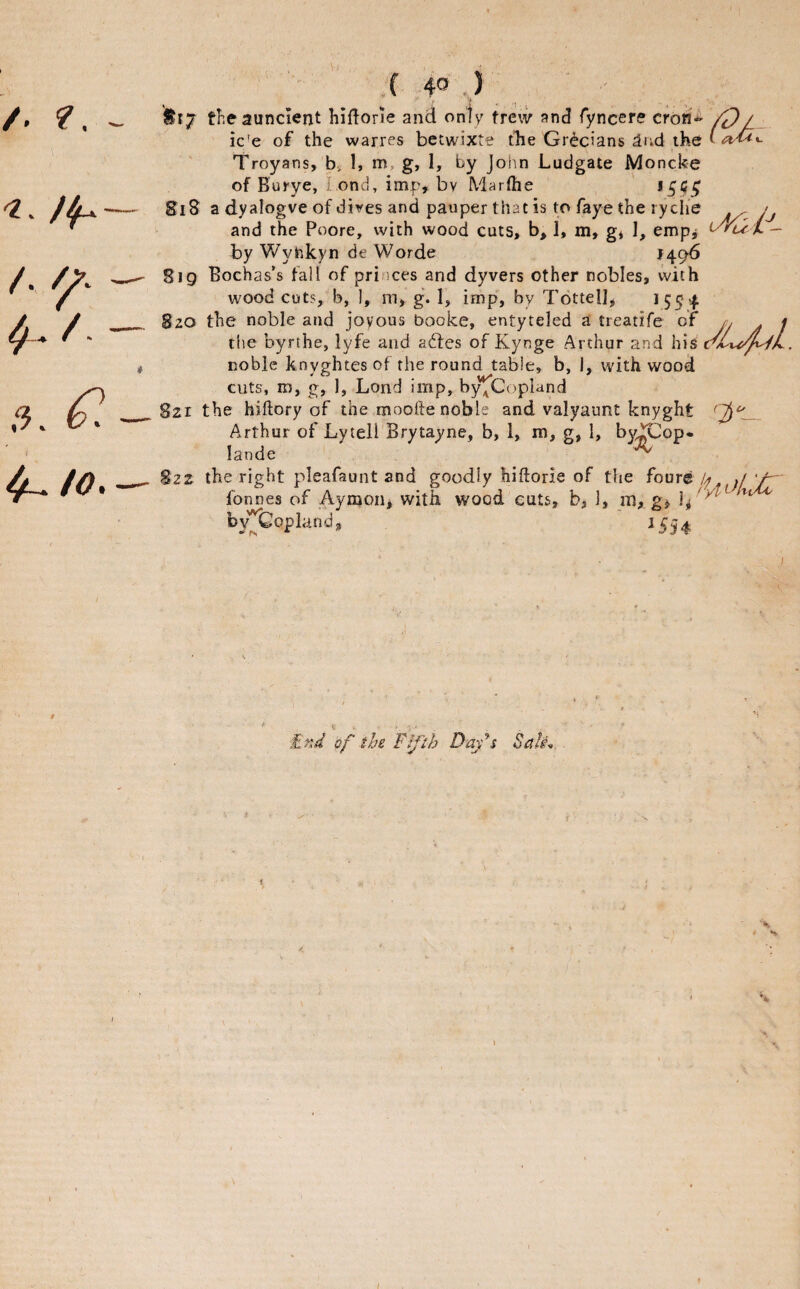 ( 40 )
1. 9. – 817 the auncient hiſtorie and only trew and ſyncere cron-
icle of the warres betwixte the Grecians and the
Troyans, b, l, m, g, l, by John Ludgate Moncke
of Burye, Lond, imp, by Marſhe 1555
2. 14 – 818 a dyalogve of dives and pauper that is to ſaye the ryche
and the Poore, with wood cuts, b, l, m, g, l, emp,
by Wynkyn de Worde 1496
1. 17. – 819 Bochas's fall of princes and dyvers other nobles, with
wood cuts, b, l, m, g. l, imp, by Tottell, 1554
4. 1. – 820 the noble and joyous booke, entyteled a treatiſe of
the byrthe, lyfe and actes of Kynge Arthur and his
noble knyghtes of the round table, b, l, with wood
cuts, m, g, l, Lond imp, by W Copland
3. 6. – 821 the hiſtory of the mooſte noble and valyaunt knyght Do
Arthur of Lytell Brytayne, b, l, m, g, l, by W Cop-
lande
4. 10. – 822 the right pleaſaunt and goodly hiſtorie of the foure
ſonnes of Aymon, with wood cuts, b, l, m, g, l,
by W Copland, 1554
End of the Fifth Day's Sale.